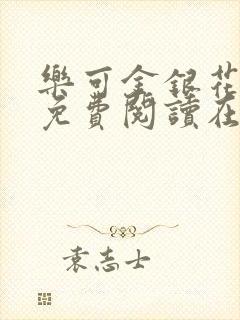 樂可金銀花
免費閱讀在
袁志士